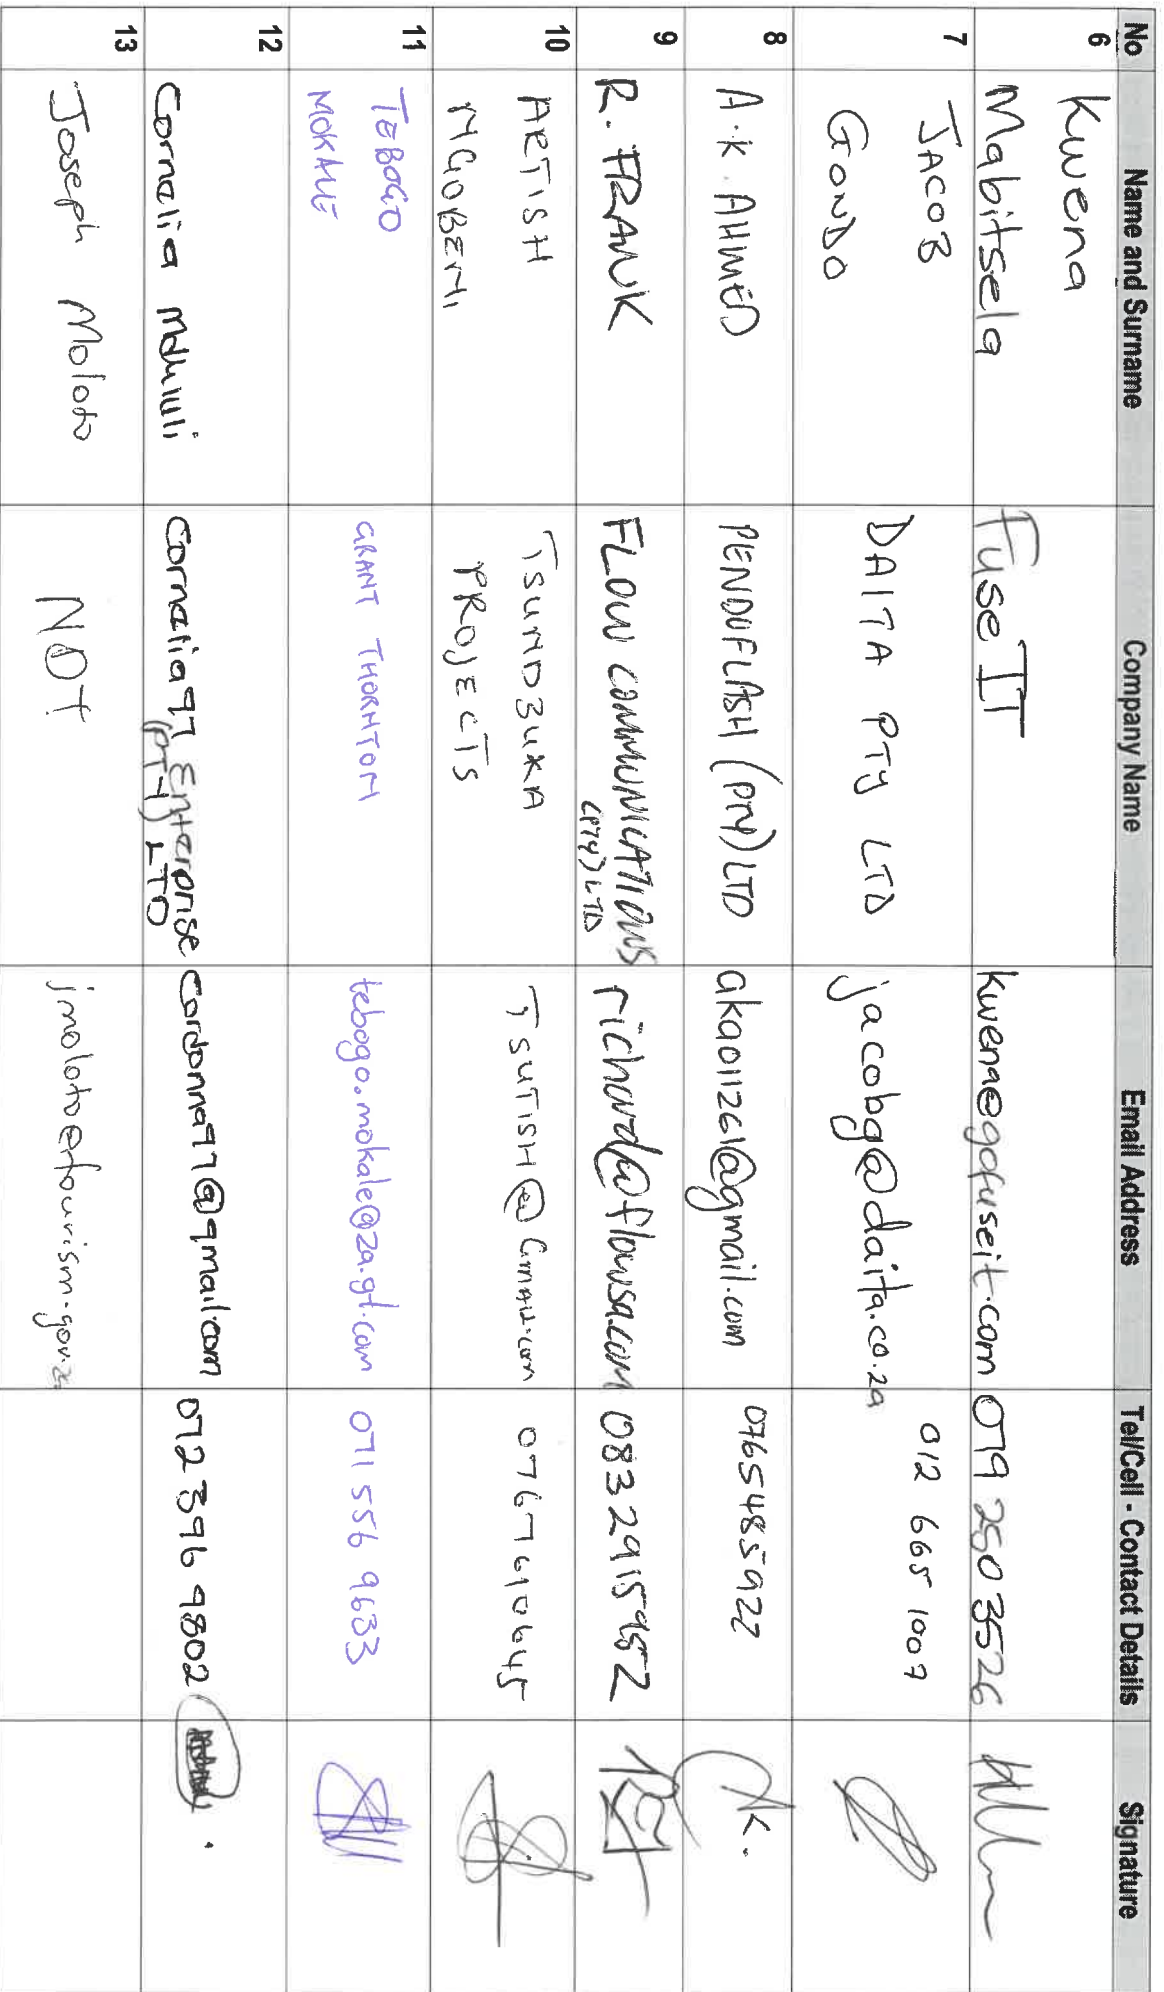 No Name and Surname Company Name Email Address Tel/Cell - Contact Details Signature
6 Kwena
Mabitsela Fuse IT kwena@gofuseit.com 079 250 3526
7 JACOB
GONDO DAITA PTY LTD jacobg@daita.co.za 012 665 1007
8 A.K. AHMED PENDUFLASH (PTY) LTD aka011261@gmail.com 0765485922
9 R. FRANK FLOW COMMUNICATIONS
(PTY) LTD richard@flowsa.com 0832915952
10 ARTISH
NGOBENI TSUNDZUKA
PROJECTS TSUTISH@Gmail.com 0767610645
11 TEBOGO
MOKALE GRANT THORNTON tebogo.mokale@za.gt.com 071 556 9633
12 Cornalia Mdluli Cornalia97 Enterprise
(PTY) LTD Cordonna97@gmail.com 072 396 9802
13 Joseph Moloto NDT jmoloto@tourism.gov.za